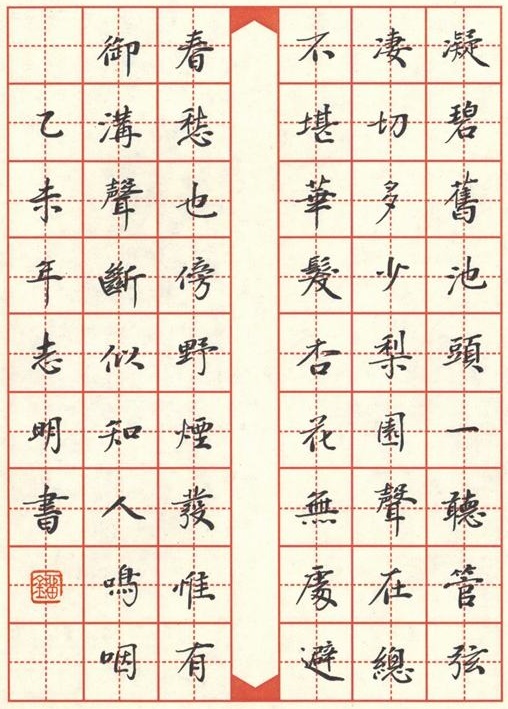 凝碧舊池頭一聽管弦
淒切多少梨園聲在總
不堪華髮杏花無處避
春愁也傍野煙發惟有
御溝聲斷似知人嗚咽
乙未年志明書